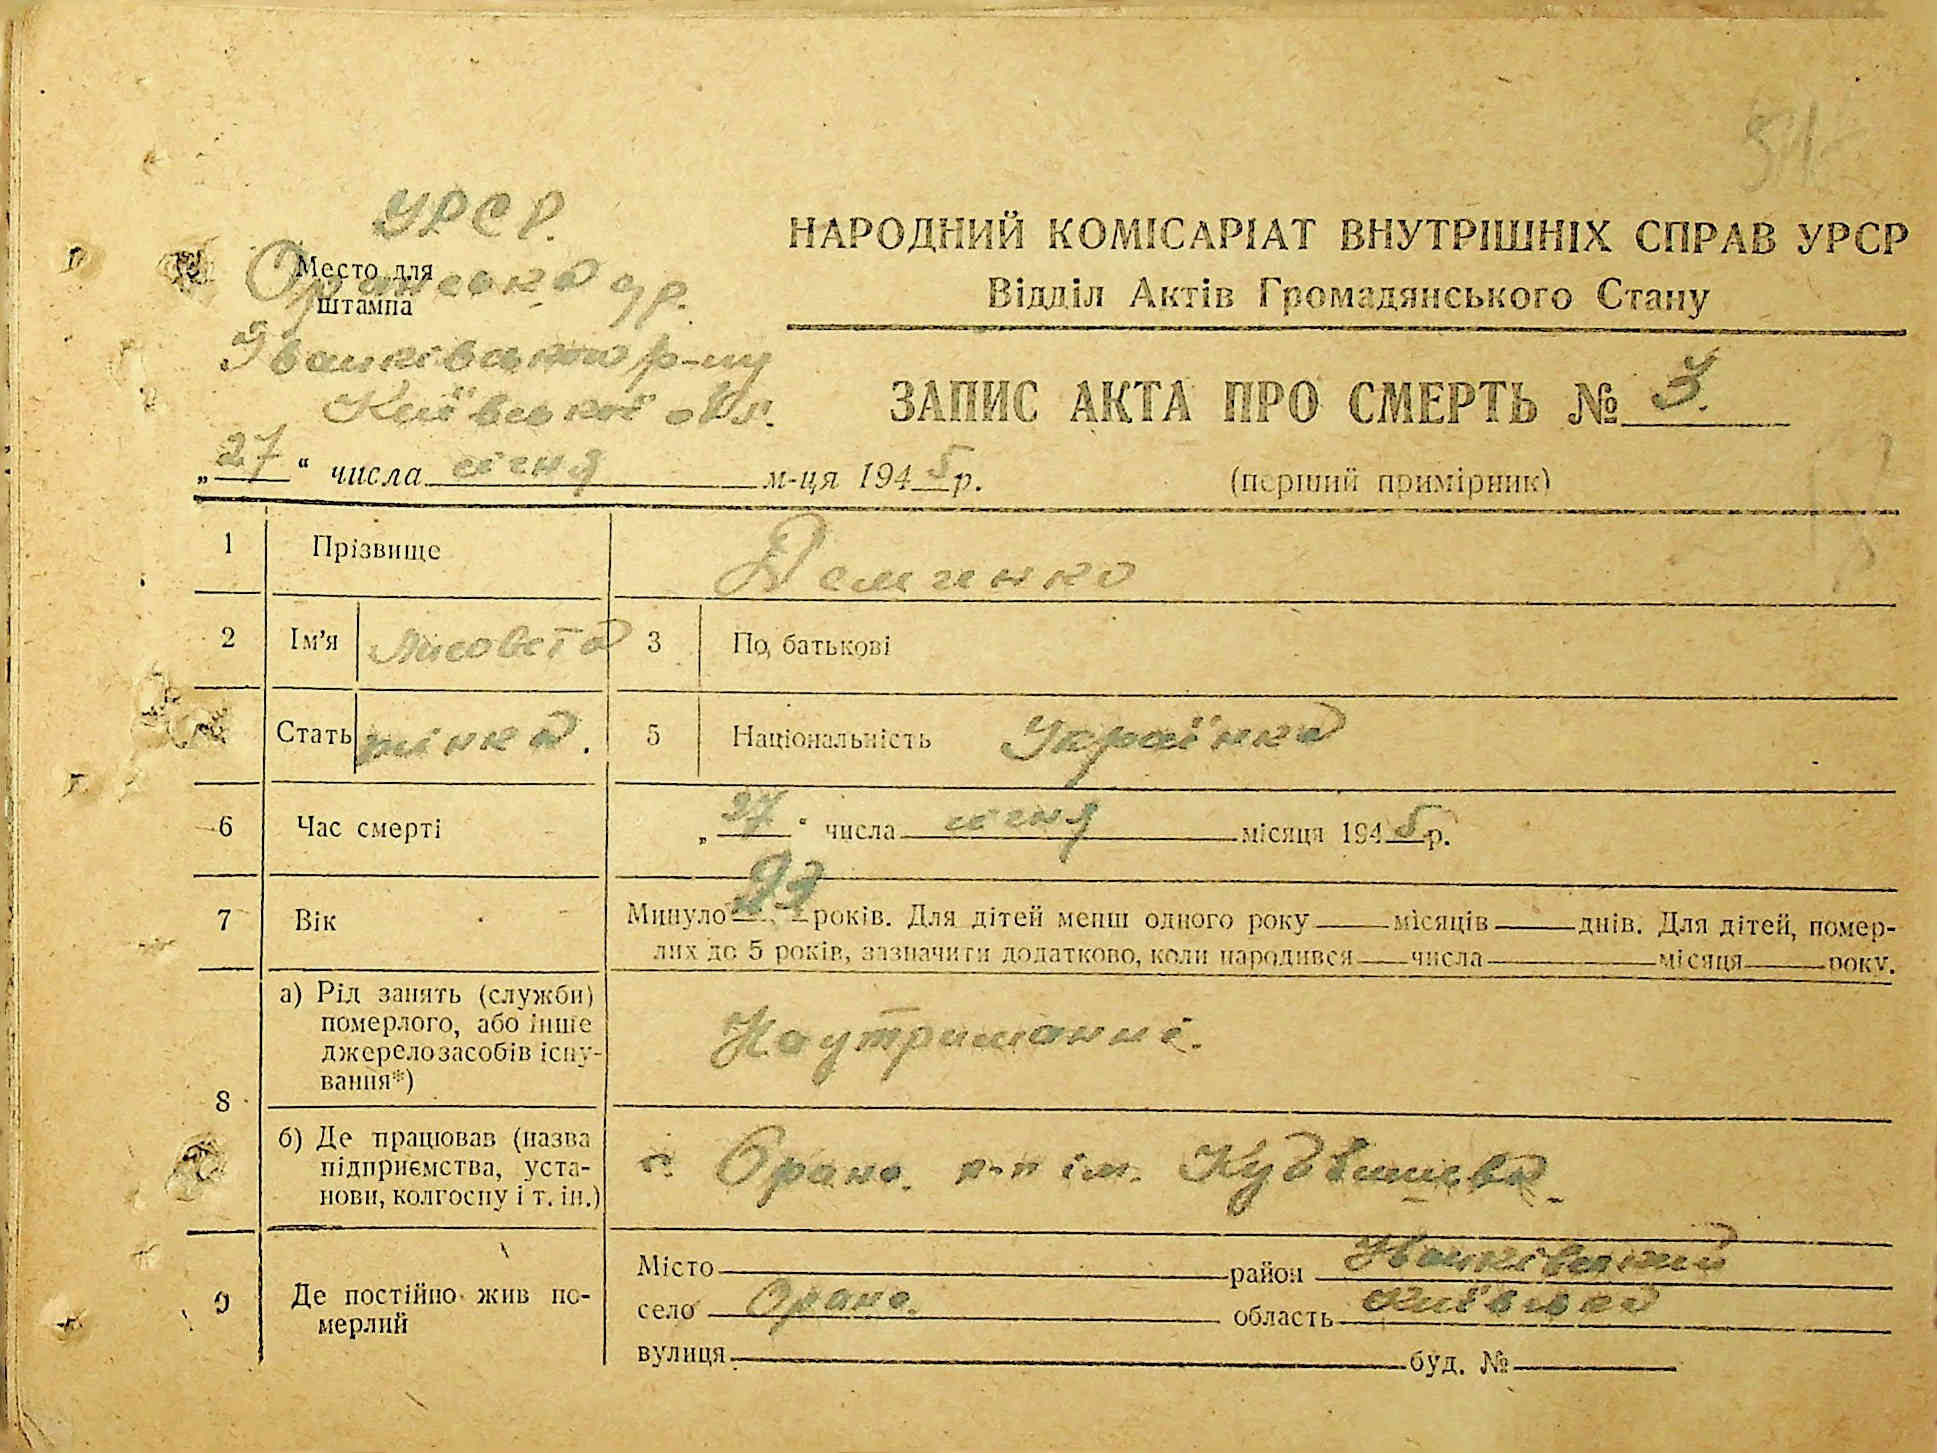 51
УРСР.
Місто для
штампа
Оранська с/р.
Іванківського р-ну
Київської обл.
НАРОДНИЙ КОМІСАРІАТ ВНУТРІШНІХ СПРАВ УРСР
Відділ Актів Громадянського Стану
ЗАПИС АКТА ПРО СМЕРТЬ № 3.
„27“ числа січня м-ця 1945 р.
(перший примірник)
1 Прізвище Демченко
2 Ім'я Лисовета 3 По батькові
Стать жінка. 5 Національність Українка
6 Час смерті „27“ числа січня місяця 1945 р.
7 Вік Минуло 23 років. Для дітей менш одного року місяців днів. Для дітей, помер-
лих до 5 років, зазначити додатково, коли народився числа місяця року.
8
а) Рід занять (служби)
померлого, або інше
джерело засобів існу-
вання*)
На утриманні.
б) Де працював (назва
підприємства, уста-
нови, колгоспу і т. ін.)
с. Оране. к-п ім. Куйбишева.
9 Де постійно жив по-
мерлий
Місто район Іванківський
село Оране. область Київська
вулиця буд. №